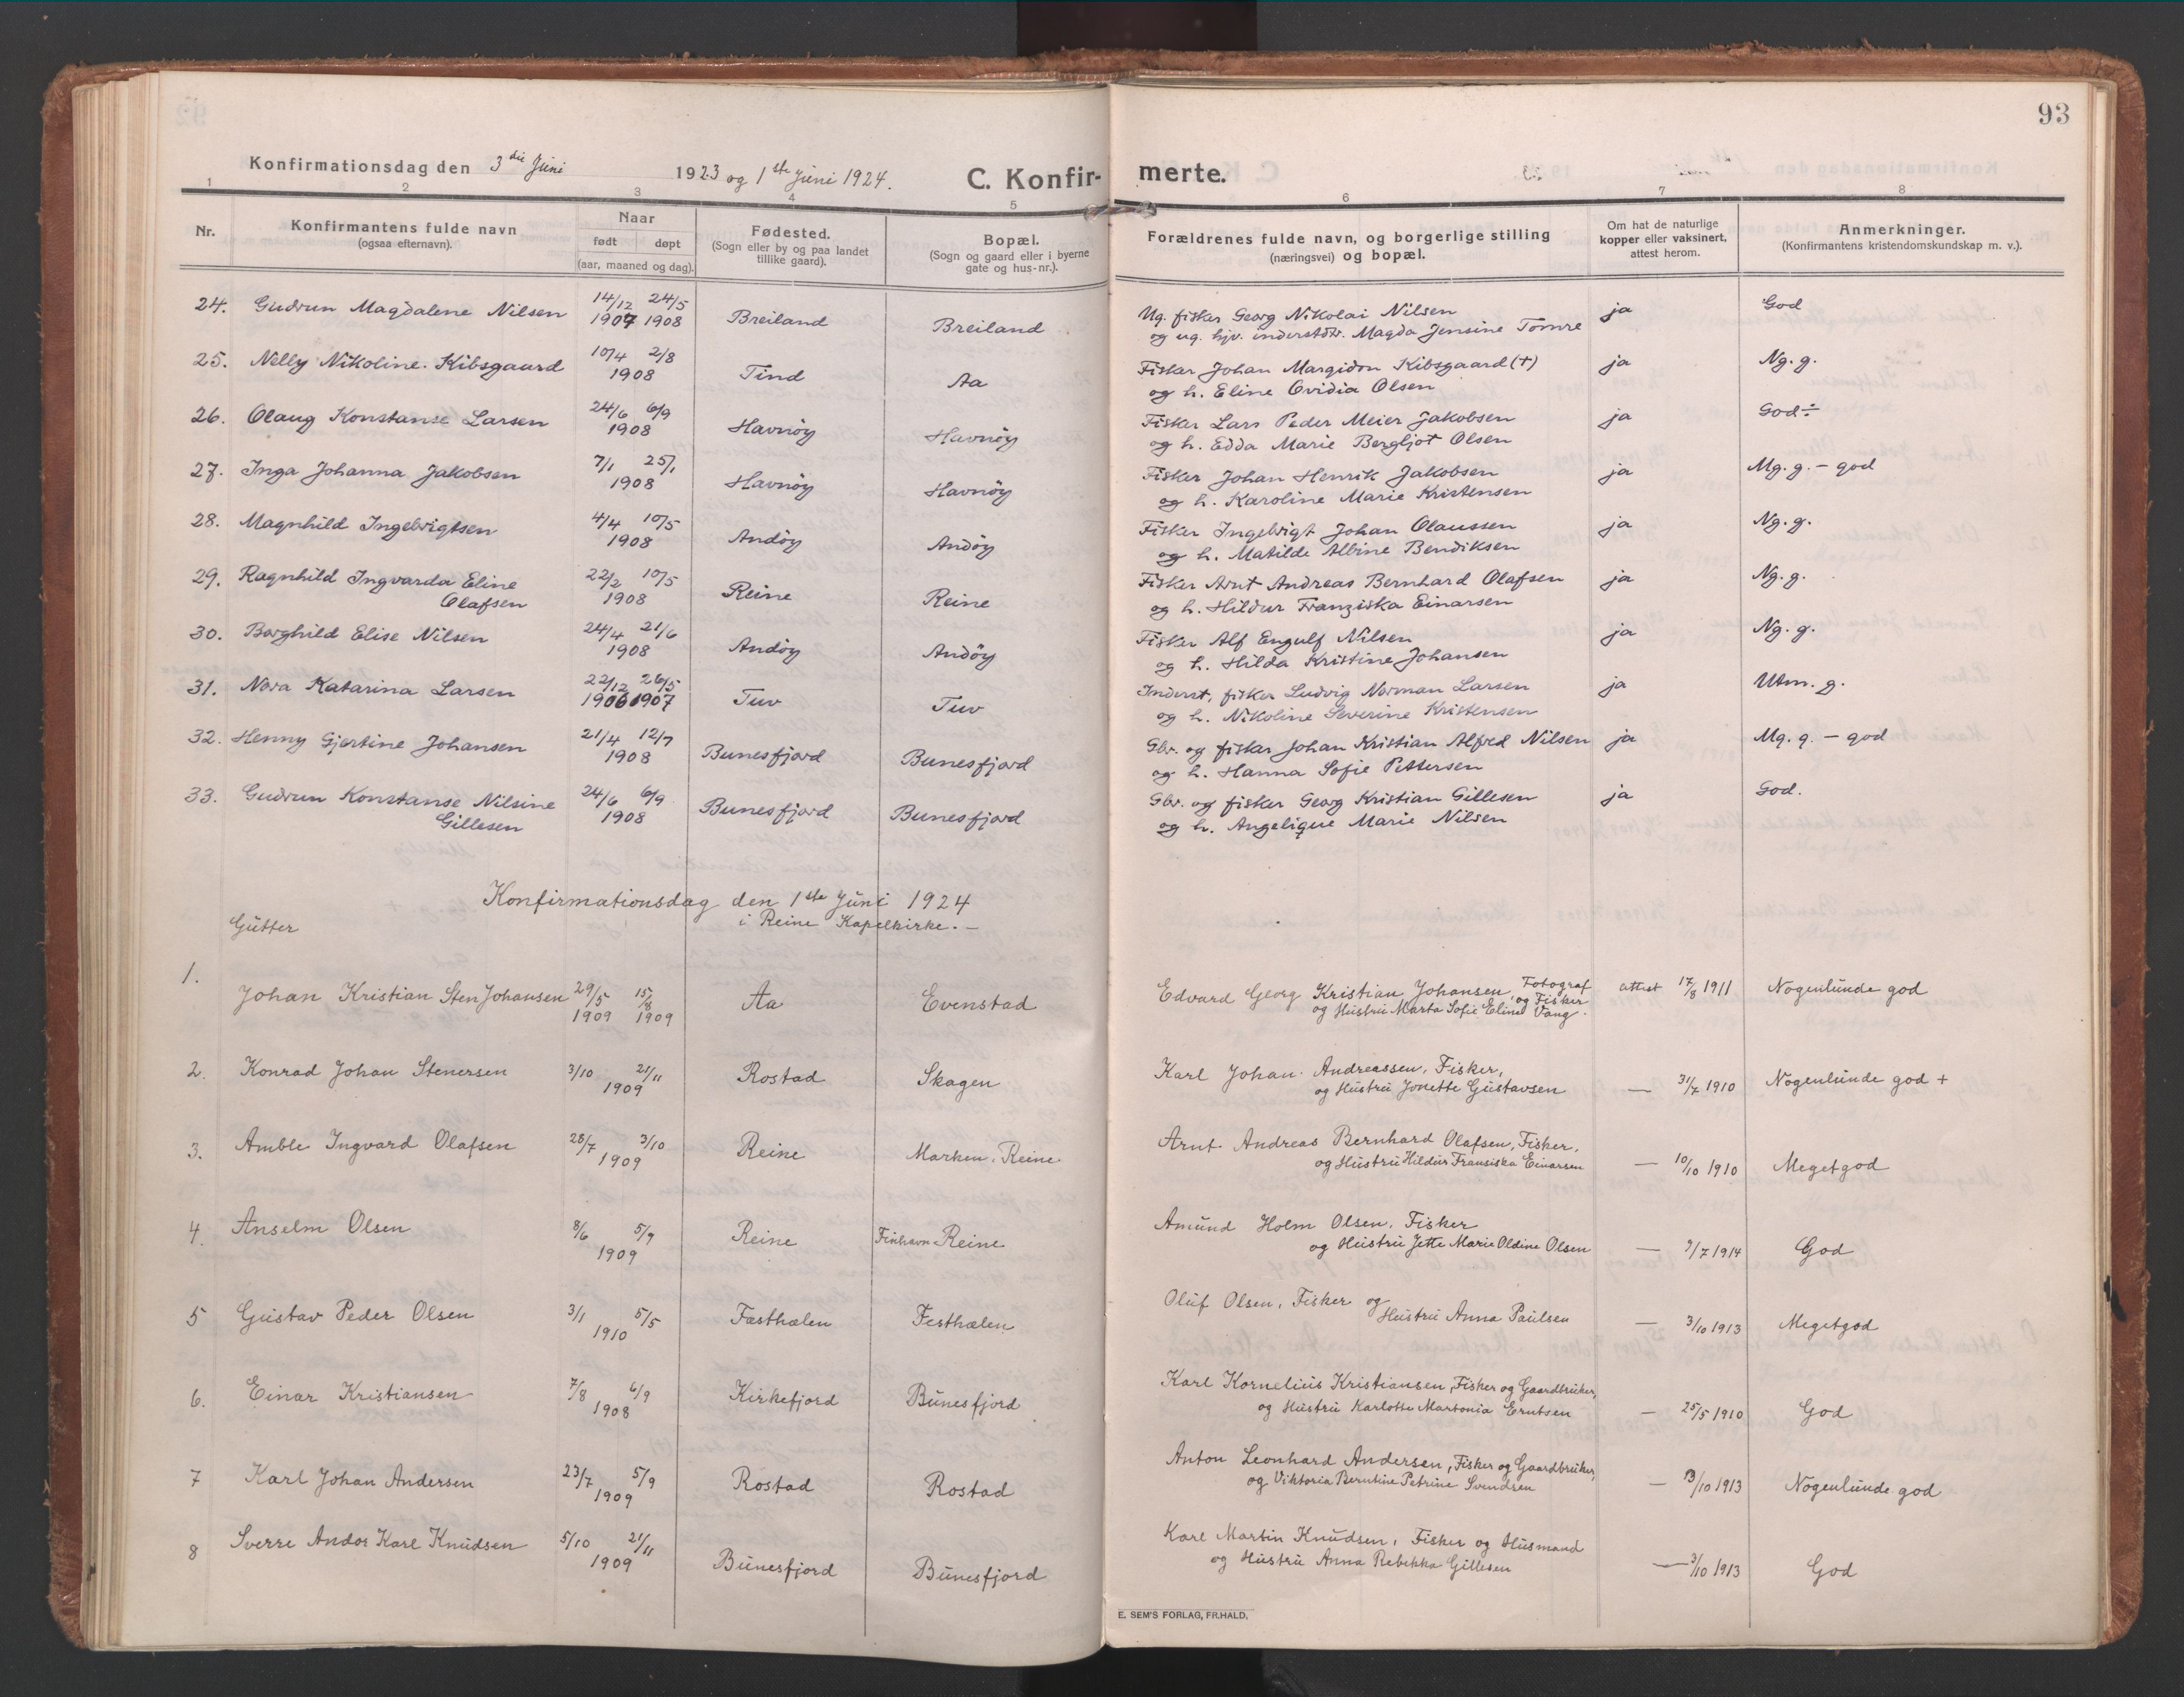 93
Konfirmationsdag den 3die Juni 1923 og 1ste Juni 1924. C. Konfirmerte.
1 2 3 4 5 6 7 8
Nr. Konfirmantens fulde navn (ogsaa efternavn). Naar født døpt (aar, maaned og dag). Fødested. (Sogn eller by og paa landet tillike gaard). Bopæl. (Sogn og gaard eller i byerne gate og hus-nr.). Forældrenes fulde navn, og borgerlige stilling (næringsvei) og bopæl. Om hat de naturlige kopper eller vaksinert, attest herom. Anmerkninger. (Konfirmantens kristendomskundskap m. v.).
24. Gudrun Magdalene Nilsen 14/12 1907 24/5 1908 Breiland Breiland Ug. fisker Georg Nikolai Nilsen ja God
og ug. hjv. inderstdtr. Magda Jensine Tomre
25. Nelly Nikoline Kibsgaard 10/4 2/8 1908 Tind Aa Fisker Johan Margidon Kibsgaard (+) ja Ng. g.
og h. Eline Ovidia Olsen
26. Olaug Konstanse Larsen 24/6 6/9 1908 Havnöy Havnöy Fisker Lars Peder Meier Jakobsen ja God ÷
og h. Edda Marie Bergljot Olsen
27. Inga Johanna Jakobsen 7/1 25/1 1908 Havnöy Havnöy Fisker Johan Henrik Jakobsen ja Mg. g. - god
og h. Karoline Marie Kristensen
28. Magnhild Ingebrigtsen 4/4 10/5 1908 Andöy Andöy Fisker Ingebrigt Johan Olaussen ja Ng. g.
og h. Matilde Albine Bendiksen
29. Ragnhild Ingvarda Eline 22/2 10/5 1908 Reine Reine Fisker Arnt Andreas Bernhard Olafsen ja Ng. g.
Olafsen og h. Hildur Franziska Einarsen
30. Borghild Elise Nilsen 24/4 21/6 1908 Andöy Andöy Fisker Alf Engulf Nilsen ja Ng. g.
og h. Hilda Kristine Johansen
31. Nora Katarina Larsen 22/12 1906 26/5 1907 Tuv Tuv Inderst, fisker Ludvig Norman Larsen ja Utm. g.
og h. Nikoline Severine Kristensen
32. Henny Gjertine Johansen 21/4 12/7 1908 Bunesfjord Bunesfjord Gbr. og fisker Johan Kristian Alfred Nilsen ja Mg. g. - god
og h. Hanna Sofie Pettersen
33. Gudrun Konstanse Nilsine 24/6 6/9 1908 Bunesfjord Bunesfjord Gbr. og fisker Georg Kristian Gillesen ja God.
Gillesen og h. Angelique Marie Nilsen
Konfirmationsdag den 1ste Juni 1924
Gutter i Reine Kapelkirke. -
1. Johan Kristian Sten Johansen 29/5 1909 15/8 1909 Aa Evenstad Edvard Georg Kristian Johansen, Fotograf og Fisker attest 17/8 1911 Nogenlunde god
og Hustru Marta Sofie Eline Vang.
2. Konrad Johan Stenersen 3/10 21/11 1909 Rostad Skagen Karl Johan Andreassen, Fisker, — 31/7 1910 Nogenlunde god +
og Hustru Jonette Gustavsen
3. Amble Ingvard Olafsen 28/7 3/10 1909 Reine Marken, Reine. Arnt Andreas Bernhard Olafsen, Fisker, — 10/10 1910 Megetgod
og Hustru Hildur Fransiska Einarsen
4. Anselm Olsen 8/6 5/9 1909 Reine Reine Amund Holm Olsen, Fisker — 9/7 1914 God
og Hustru Jette Marie Oldine Olsen
5 Gustav Peder Olsen 3/1 5/5 1910 Fasthælen Festhælen Oluf Olsen, Fisker og — 3/10 1913 Megetgod
Hustru Anna Paulsen
6. Einar Kristiansen 7/8 6/9 1908 Kirkefjord Bunesfjord Karl Kornelius Kristiansen, Fisker og Gaardbruker, — 25/5 1910 God
og Hustru Karlotte Martonia Erntsen
7 Karl Johan Andersen 23/7 5/9 1909 Rostad Rostad Anton Leonhard Andersen, Fisker og Gaardbruker, — 3/10 1913 Nogenlunde god
og Viktoria Berntine Petrine Svendsen
8 Sverre Andor Karl Knudsen 5/10 21/11 1909 Bunesfjord Bunesfjord Karl Martin Knudsen, Fisker og Husmand — 3/10 1913 God
og Hustru Anna Rebekka Gillesen
E. SEM'S FORLAG, FR.HALD,